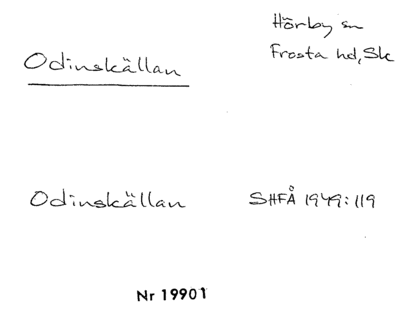 Hörby sn
Odinskällan
Frosta hd, Sk
Odinskällan SHFÅ 1949:119
Nr 19901